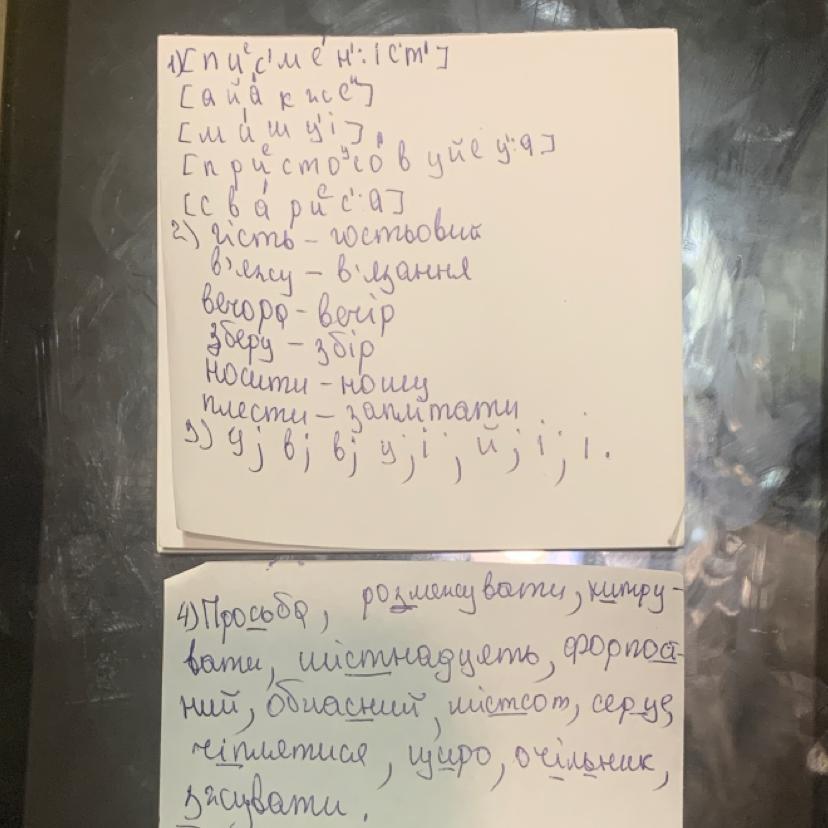 1) [пиᵉс'ме́н':іс'т']
[айа́кжеᴻ]
[ми́шц'і]
[приᵉстоʸсо́вуйец':а]
[сва́риᵉс'а]
2) гість – гостьовий
в'яжу – в'язання
вечора – вечір
зберу – збір
носити – ношу
плести – заплітати
3) У; в; в; у; і; й; і; і.
4) Просьба, розмежувати, хитру-
вати, шістнадцять, форпост-
ний, обласний, шістсот, серце,
чіплятися, щиро, очільник,
з'ясувати.